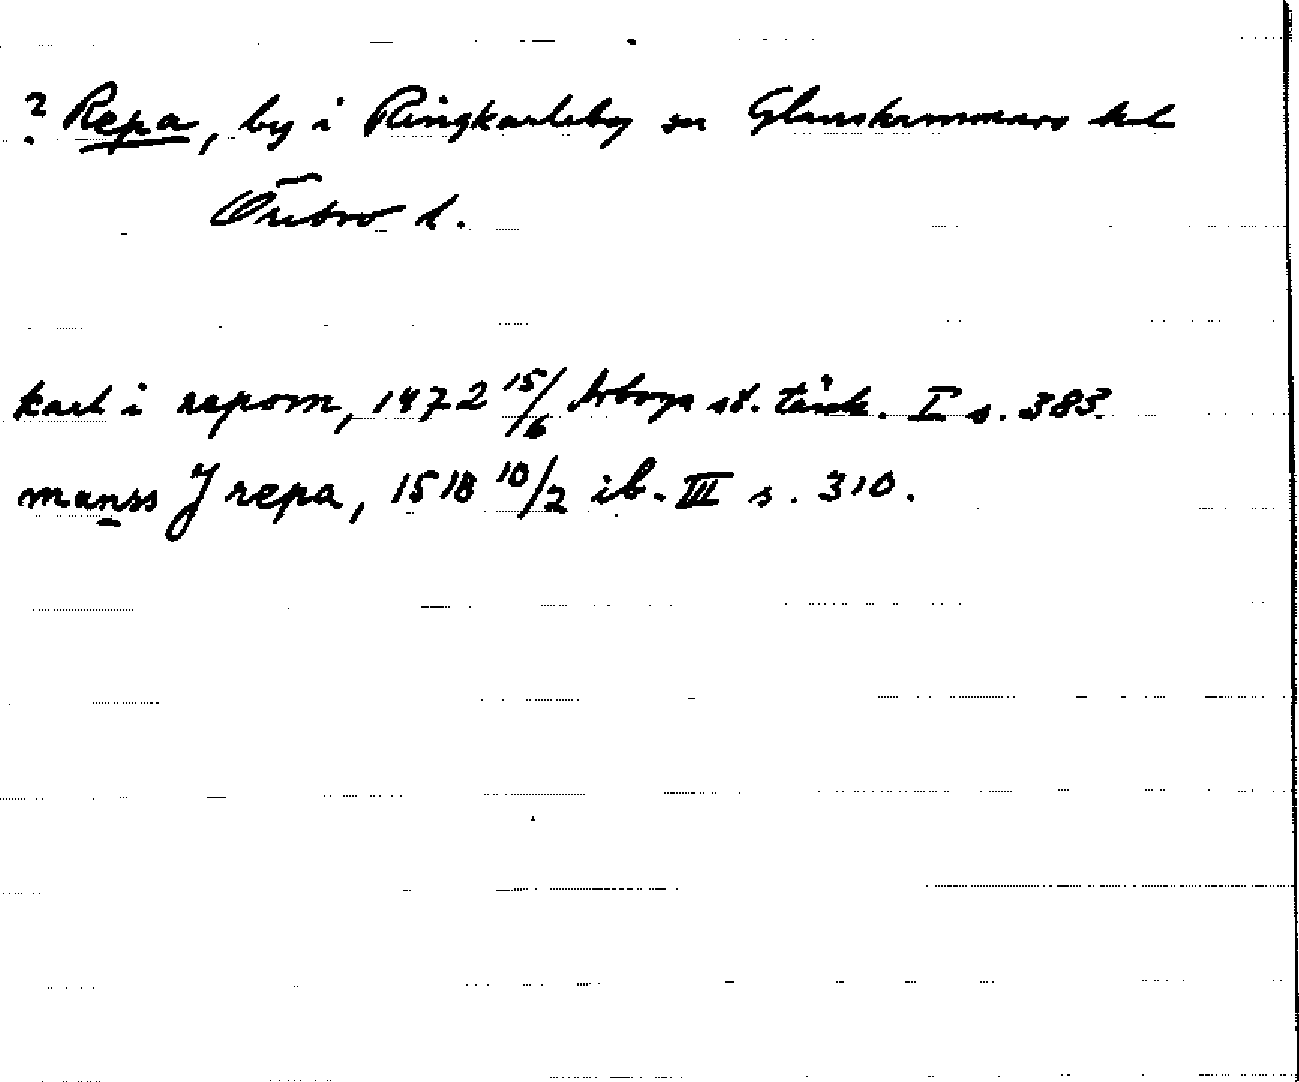 ? Repa, by i Ringkarleby sn Glanshammars hd
Örebro l.
karl i repom, 1472 15/6 Arboga st. tänk. I s. 385.
manss J repa, 1518 10/2 ib. III s. 310.